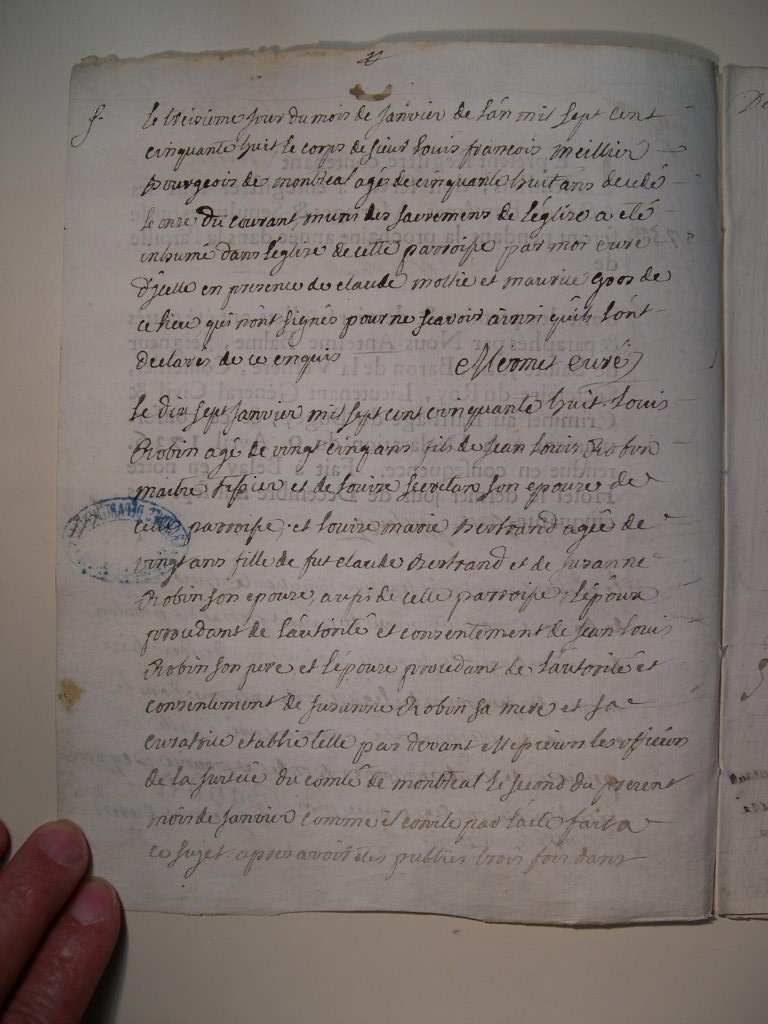 f.
le treisieme jour du mois de janvier de l'an mil sept cent
cinquante huit le corps de sieur louis francois meillier
Bourgeois de montreal agé de cinquante huit ans decedé
le onze du courant, muni des sacremens de l'église a eté
inhumé dans l'église de cette parroisse par moi curé
d'jcelle en presence de claude mottie et maurice gros de
ce lieu qui n'ont signés pour ne scavoir ainsi qu'ils s'ont
declarés de ce enquis Mermet curé
le dix sept janvier mil sept cent cinquante huit. louis
Robin agé de vingt cinq ans fils de jean louis Robin
maitre tissier et de louise secretan son epouse de
cette parroisse, et louise marie Bertrand agée de
vingt ans fille de fut claude Bertrand et de suzanne
Robin son epouse, aussi de cette parroisse, l'époux
procedant de l'autorité et consentement de jean louis
Robin son pere et l'épouse procedant de l'autorité et
consentement de suzanne Robin sa mere et sa
curatrice etablie telle par devant Messieurs les officiers
de la du comté de montreal le second du present
mois de janvier comme il conste par l'acte fait a
ce sujet. apres avoir étés publiés trois fois dans